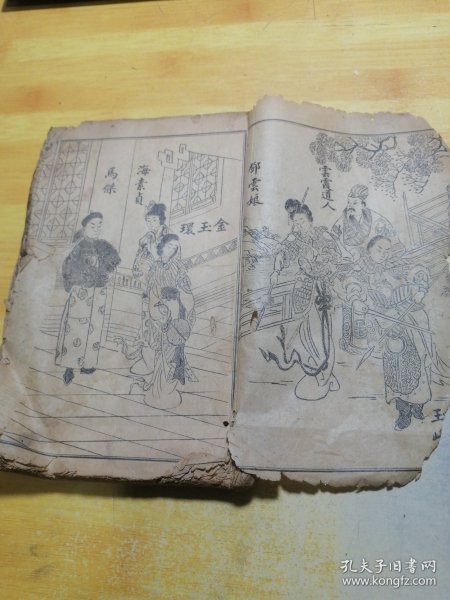 雲霞道人
鄧雲娘
玉
金玉環
海素貞
馬傑
孔夫子旧书网
www.kongfz.com